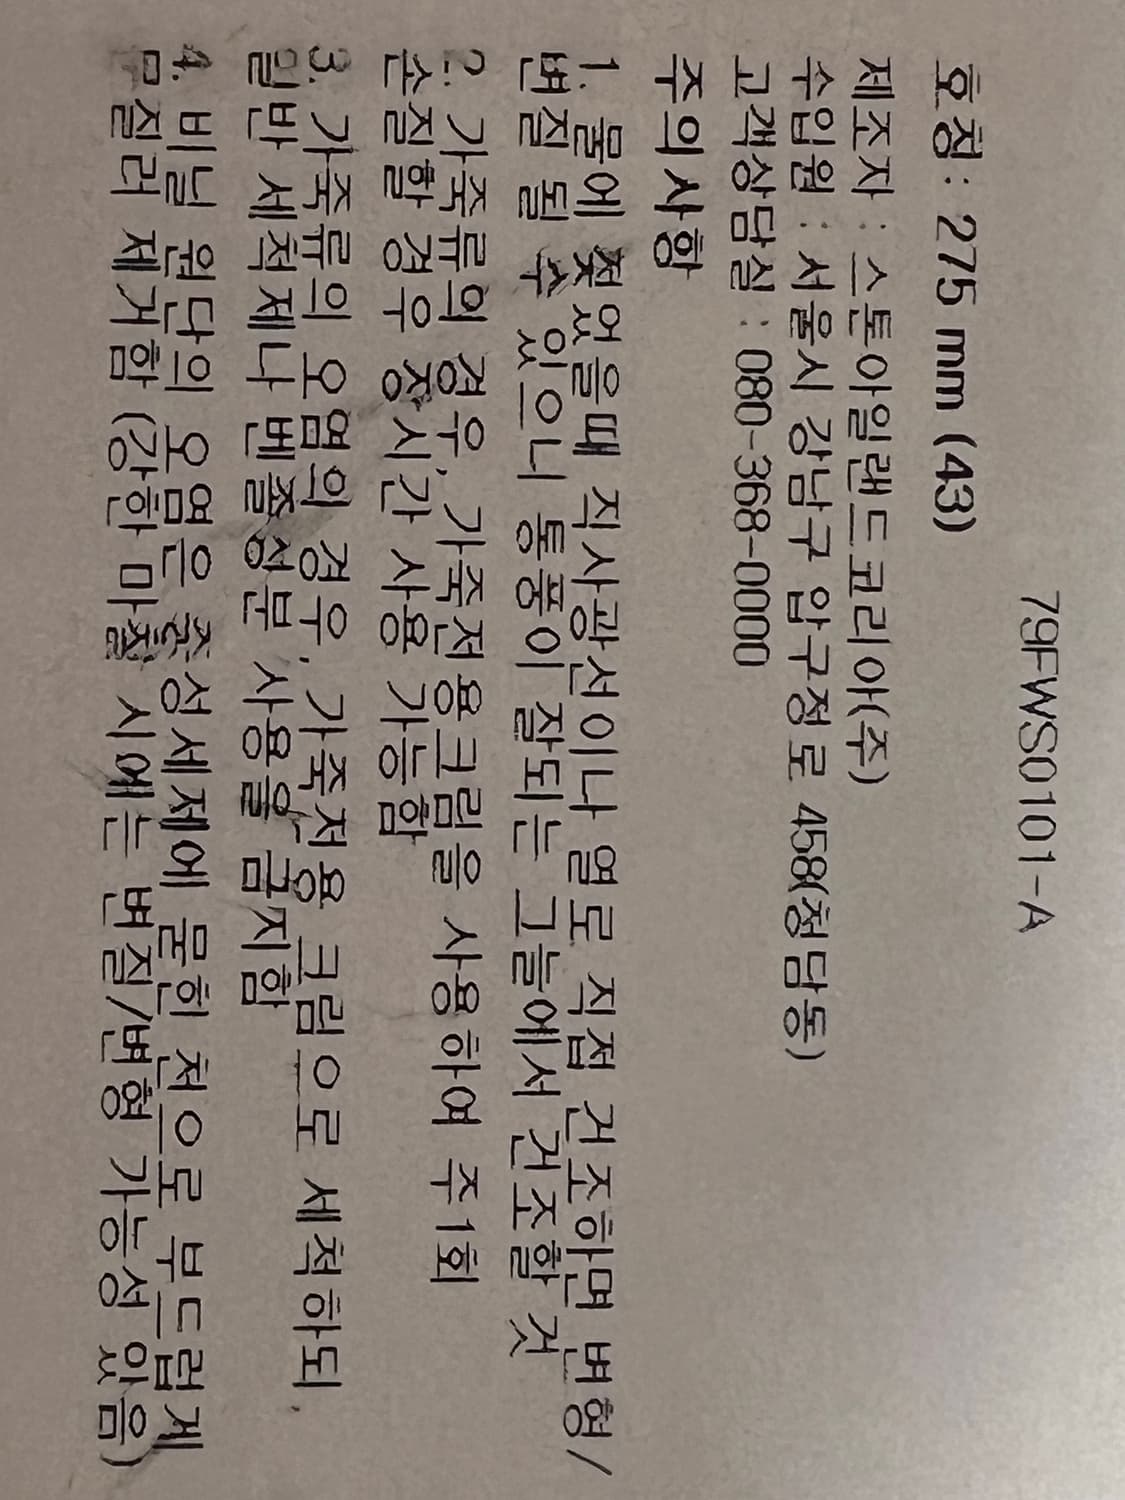 79FWS0101-A
호칭: 275 mm (43)
제조자 : 스톤아일랜드코리아(주)
수입원 : 서울시 강남구 압구정로 458(청담동)
고객상담실 : 080-368-0000
주의사항
1. 물에 젖었을때 직사광선이나 열로 직접 건조하면 변형/
변질 될 수 있으니 통풍이 잘되는 그늘에서 건조할 것
2. 가죽류의 경우, 가죽전용크림을 사용하여 주1회
손질할 경우 장시간 사용 가능함
3. 가죽류의 오염의 경우, 가죽전용 크림으로 세척하되,
일반 세척제나 벤졸성분 사용을 금지함
4. 비닐 원단의 오염은 중성세제에 묻힌 천으로 부드럽게
문질러 제거함 (강한 마찰 시에는 변질/변형 가능성 있음)